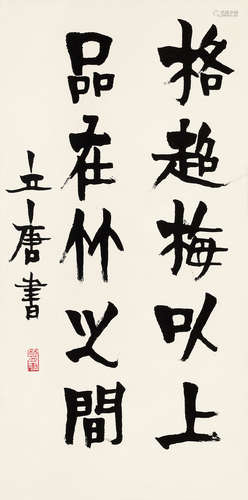 格超梅以上
品在竹之間
立唐書